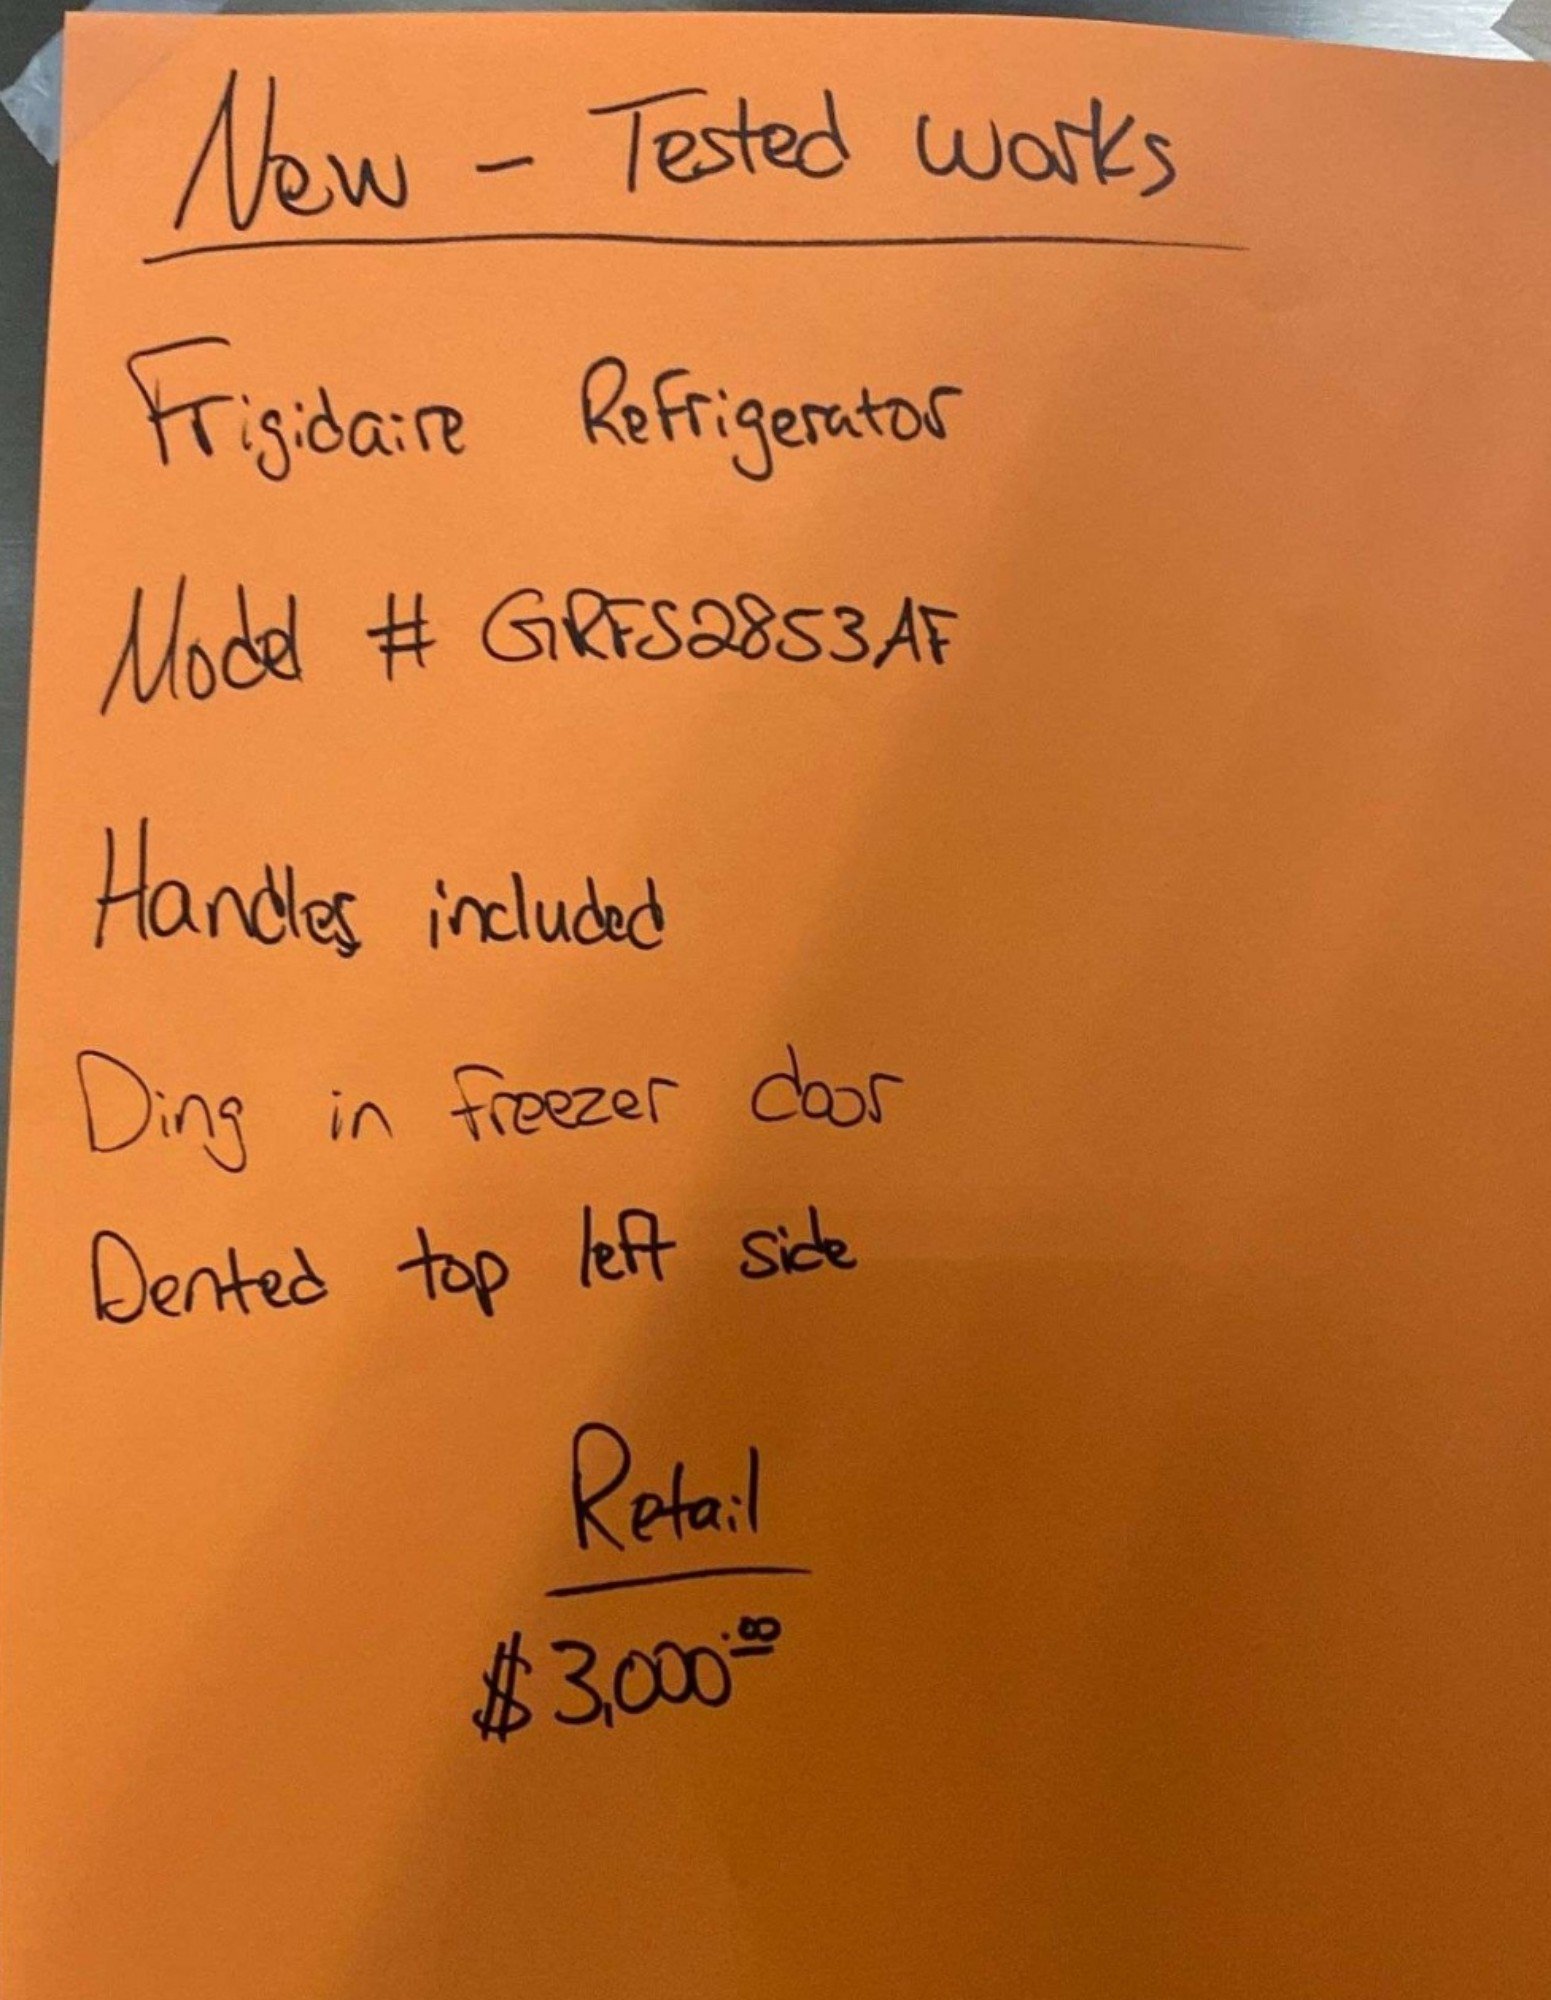 New - Tested works
Frigidaire Refrigerator
Model # GRFS2853AF
Handles included
Ding in freezer door
Dented top left side
Retail
$3,000.00